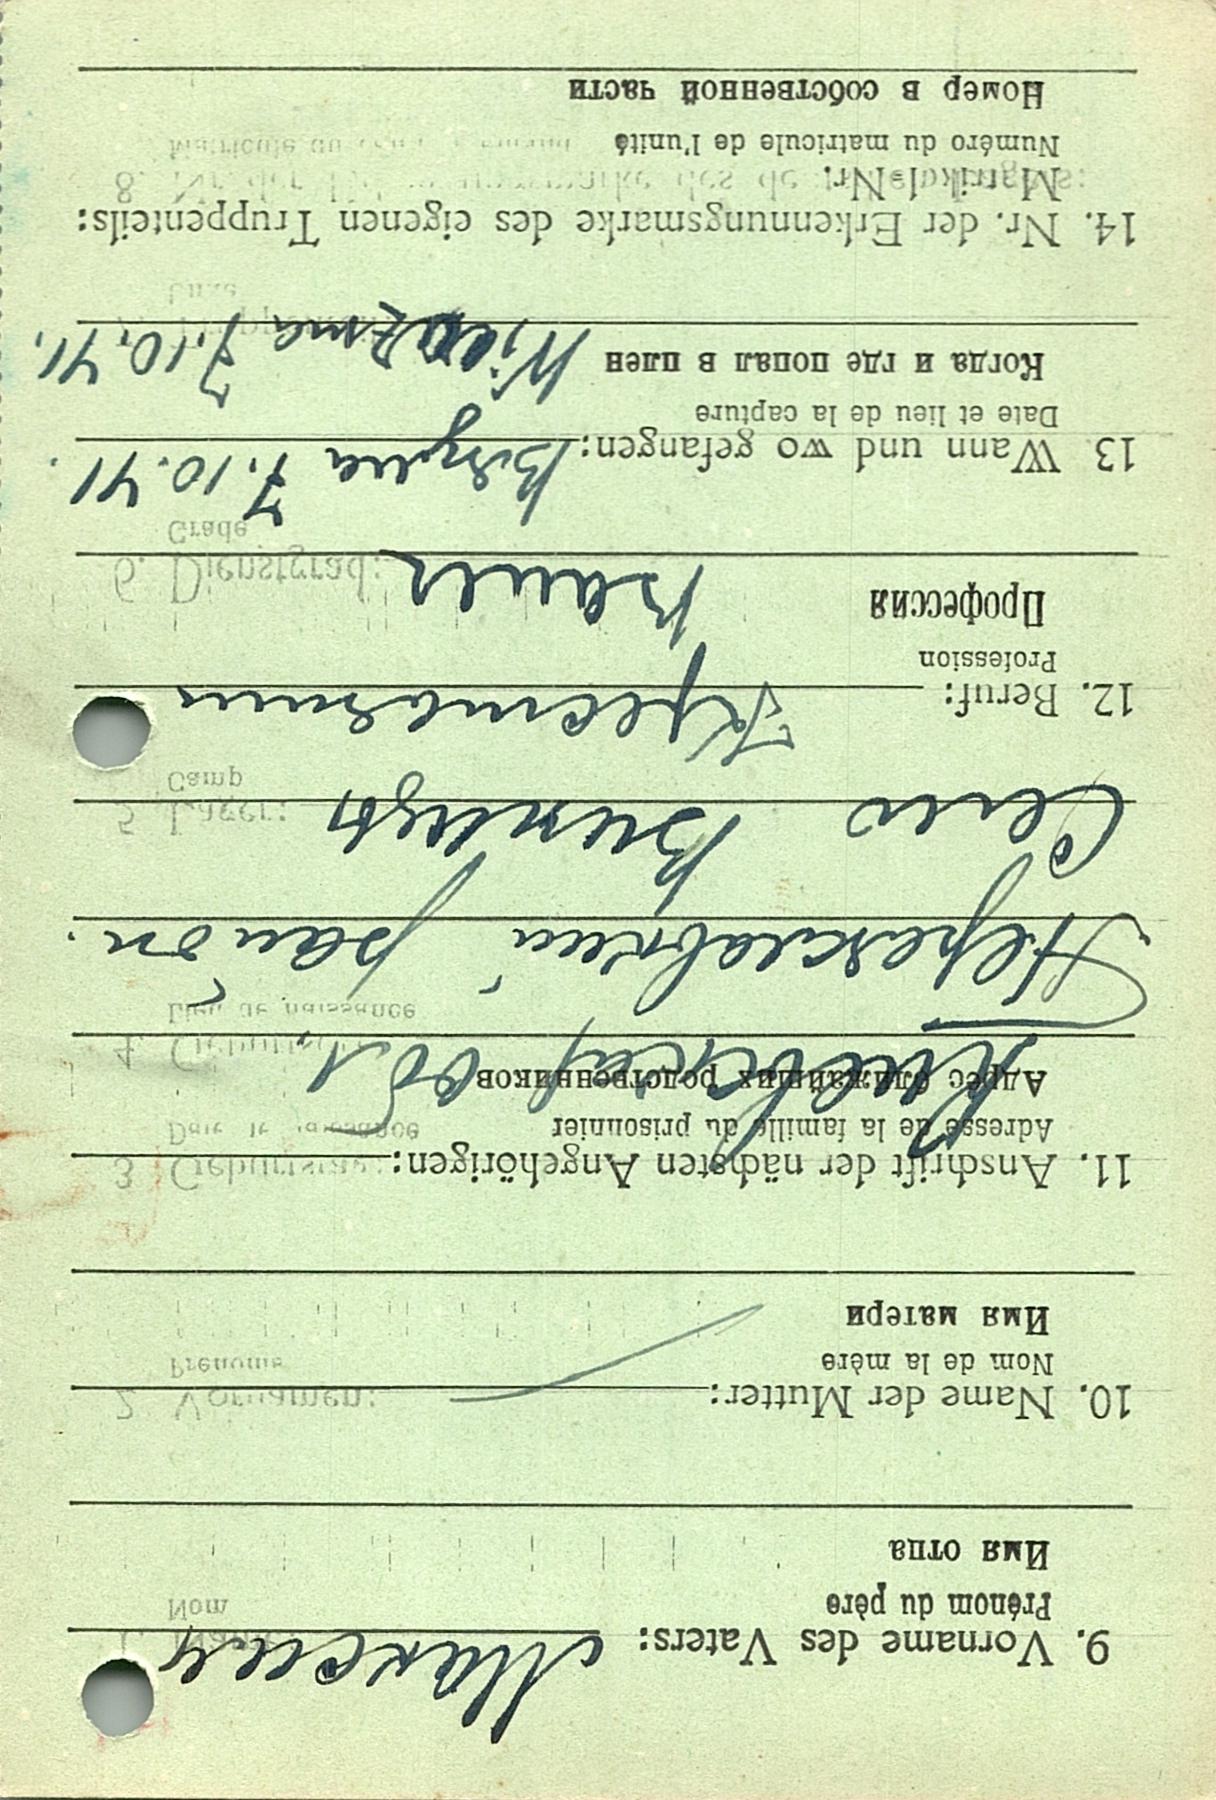 9. Vorname des Vaters: Максим
Prénom du père
Имя отца
10. Name der Mutter:
Nom de la mère
Имя матери
11. Anschrift der nächsten Angehörigen:
Adresse de la famille du prisonnier
Адрес ближайших родственников
Киевская обл.
Переяславский район.
Село
12. Beruf: Крестьянин
Profession
Профессия Bauer
13. Wann und wo gefangen: Вязма 7.10.41.
Date et lieu de la capture
Когда и где попал в плен Wiazma 7.10.41.
14. Nr. der Erkennungsmarke des eigenen Truppenteils:
Matrikul-Nr.
Numéro du matricule de l'unité
Номер в собственной части